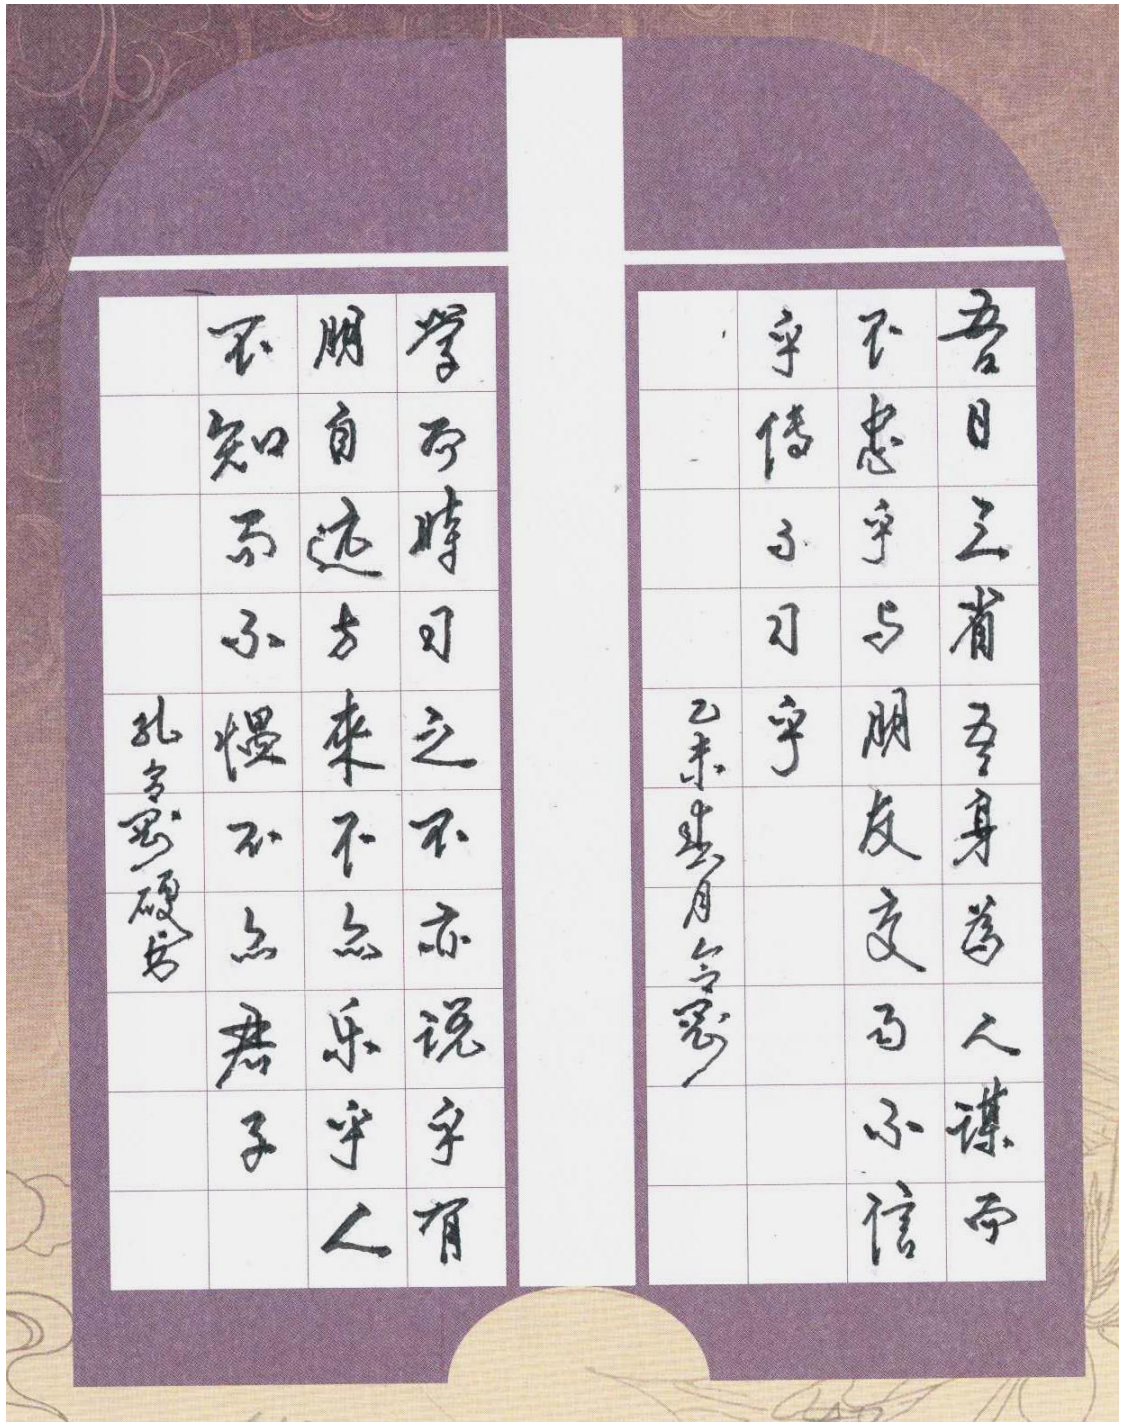 吾日三省吾身為人谋而
不忠乎与朋友交而不信
乎傳不习乎
乙未春月令剛
学而時习之不亦说乎有
朋自远方來不亦乐乎人
不知而不愠不亦君子
孔令剛硬书